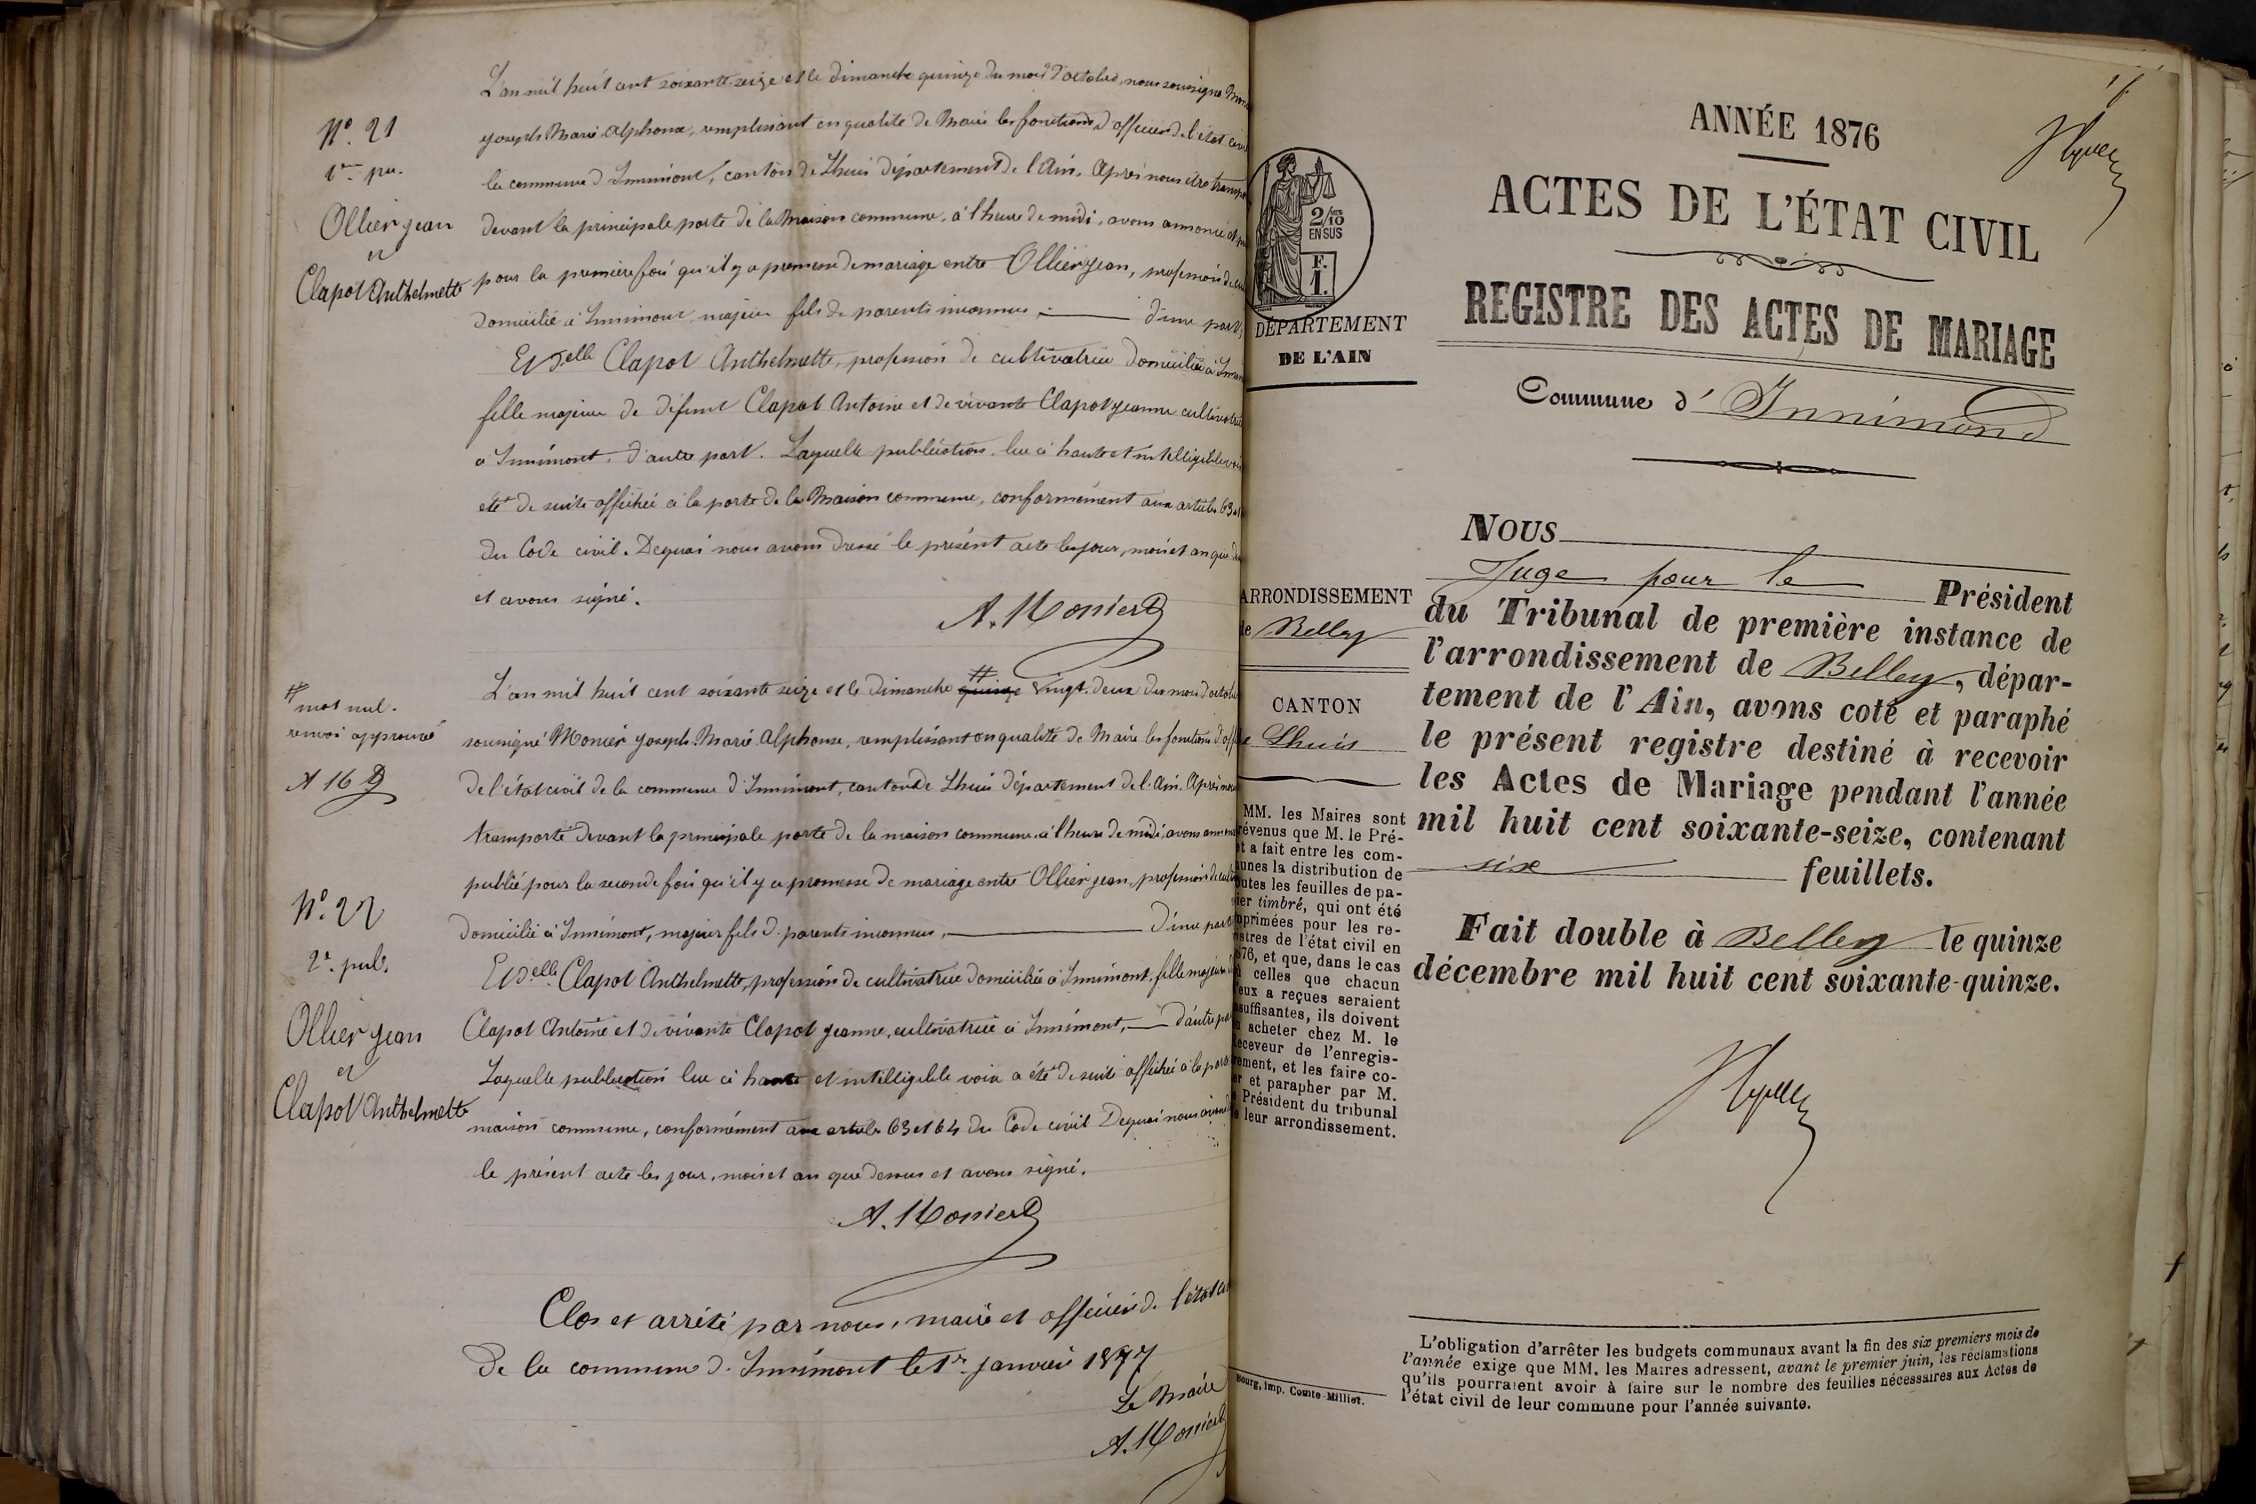 L'an mil huit cent soixante-seize et le dimanche quinze du mois d'octobre, nous soussigné
N° 21
1re pu.
Joseph Marie Alphonse, remplissant en qualité de Maire les fonctions d'officier de l'état civil
la commune d'Innimont, canton de Lhuis département de l'Ain. Après nous être
Ollier Jean
et
Clapot Anthelmette
devant la principale porte de la Maison commune, à l'heure de midi, avons annoncé et
pour la première fois qu'il y a promesse de mariage entre Ollier Jean, profession de
domicilié à Innimont majeur fils de parents inconnus, d'une part,
Et Delle Clapot Anthelmette, profession de cultivatrice domiciliée à
fille majeure de défunt Clapot Antoine et de vivante Clapot Jeanne cultivatrice
à Innimont, d'autre part. Laquelle publication lue à haute et intelligible voix
été de suite affichée à la porte de la Maison commune, conformément aux articles 63 et
du Code civil. Dequoi nous avons dressé le présent acte les jour, mois et an que
et avons signé.
A. Monier
# mot nul.
renvoi approuvé
A M
L'an mil huit cent soixante seize et le dimanche # quinze vingt-deux du mois d'octobre
soussigné Monier Joseph-Marie Alphonse, remplissant en qualité de Maire les fonctions
de l'état civil de la commune d'Innimont, canton de Lhuis département de l'Ain. Après
transporté devant la principale porte de la maison commune à l'heure de midi, avons
publié pour la seconde fois qu'il y a promesse de mariage entre Ollier Jean, profession de
N° 22
2e pub.
Ollier Jean
et
Clapot Anthelmette
domicilié à Innimont, majeur fils de parents inconnus, d'une part
Et Delle Clapot Anthelmette, profession de cultivatrice domiciliée à Innimont, fille majeure
Clapot Antoine et de vivante Clapot Jeanne, cultivatrice à Innimont, d'autre part
Laquelle publication lue à haute et intelligible voix a été de suite affichée à la porte
maison commune, conformément aux articles 63 et 64 du Code civil Dequoi nous avons
le présent acte les jour, mois et an que dessus et avons signé.
A. Monier
Clos et arrêté par nous, maire et officier de l'état
de la commune d'Innimont le 1er janvier 1877
Le Maire
A. Monier
2/10
EN SUS
F.
1.
DÉPARTEMENT
DE L'AIN
ARRONDISSEMENT
de Belley
CANTON
Lhuis
MM. les Maires sont
prévenus que M. le Pré-
fet a fait entre les com-
munes la distribution de
toutes les feuilles de pa-
pier timbré, qui ont été
imprimées pour les re-
gistres de l'état civil en
1876, et que, dans le cas
où celles que chacun
d'eux a reçues seraient
insuffisantes, ils doivent
en acheter chez M. le
Receveur de l'enregis-
trement, et les faire co-
ter et parapher par M.
le Président du tribunal
de leur arrondissement.
Bourg, imp. Comte-Milliet.
ANNÉE 1876
ACTES DE L'ÉTAT CIVIL
REGISTRE DES ACTES DE MARIAGE
Commune d'Innimond
NOUS
Juge pour le Président
du Tribunal de première instance de
l'arrondissement de Belley, dépar-
tement de l'Ain, avons coté et paraphé
le présent registre destiné à recevoir
les Actes de Mariage pendant l'année
mil huit cent soixante-seize, contenant
six feuillets.
Fait double à Belley le quinze
décembre mil huit cent soixante-quinze.
L'obligation d'arrêter les budgets communaux avant la fin des six premiers mois de
l'année exige que MM. les Maires adressent, avant le premier juin, les réclamations
qu'ils pourraient avoir à faire sur le nombre des feuilles nécessaires aux Actes de
l'état civil de leur commune pour l'année suivante.